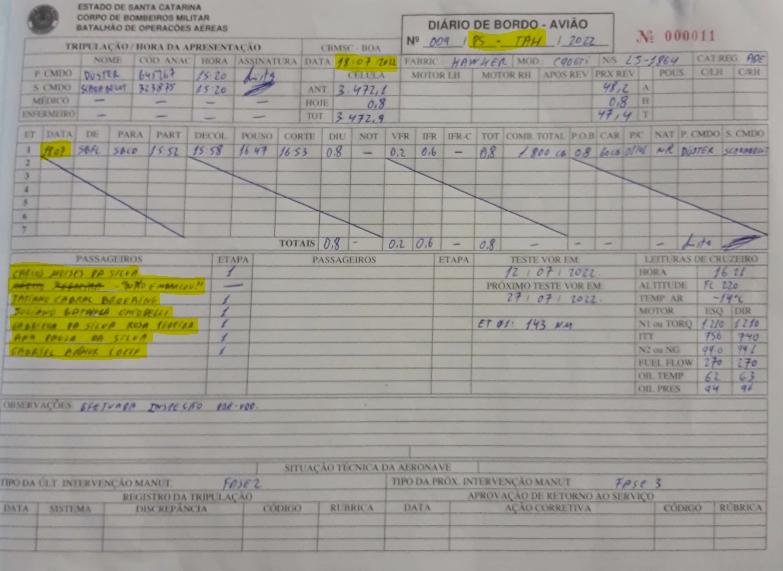 ESTADO DE SANTA CATARINA
CORPO DE BOMBEIROS MILITAR
BATALHÃO DE OPERAÇÕES AÉREAS
DIÁRIO DE BORDO - AVIÃO
Nº 009 / PS - TAH / 2022
Nº 000011
TRIPULAÇÃO / HORA DA APRESENTAÇÃO CBMSC - BOA DATA 18.07.2022 FABRIC. HAWKER MOD: N/S CAT.REG. ADE
NOME CÓD. ANAC HORA ASSINATURA CÉLULA MOTOR LH MOTOR RH APOS REV PRX REV POUS. C/LH C/RH
P. CMDO DUSTER 15:20 ANT 3.472,1 48,2 A
S. CMDO 15:20 HOJE 0,8 0,8 H
MÉDICO — — — — TOT 3.472,9 47,4 T
ENFERMEIRO — — — —
ET DATA DE PARA PART DECOL POUSO CORTE DIU NOT VFR IFR IFR-C TOT COMB. TOTAL P.O.B CAR P/C NAT P. CMDO S. CMDO
1 18.07 15:52 15:58 16 47 16:53 0.8 — 0.2 0.6 — 0,8 1.800 08 NR DUSTER
2
3
4
5
6
7
TOTAIS 0,8 — 0.2 0,6 — 0.8
PASSAGEIROS ETAPA PASSAGEIROS ETAPA TESTE VOR EM: LEITURAS DE CRUZEIRO
CARLOS MOISES DA SILVA 1 12 / 07 / 2022 HORA 16 21
"NÃO EMBARCOU" — PRÓXIMO TESTE VOR EM: ALTITUDE FL 220
TATIANO CABRAL BROERING 1 27 / 07 / 2022 TEMP. AR -19°C
JULIANO 1 MOTOR ESQ DIR
GABRIELA DA SILVA ROSA 1 ET 01: 143 NM N1 ou TORQ 1210 1210
ANA PAULA DA SILVA 1 ITT 756 740
GABRIEL ARTHUR 1 N2 ou NG 99.0 99.1
FUEL FLOW 270 270
OIL TEMP 62 63
OIL PRES 94
OBSERVAÇÕES EFETUADA INSPEÇÃO
SITUAÇÃO TÉCNICA DA AERONAVE
TIPO DA ÚLT. INTERVENÇÃO MANUT. FASE 2 TIPO DA PRÓX. INTERVENÇÃO MANUT FASE 3
REGISTRO DA TRIPULAÇÃO APROVAÇÃO DE RETORNO AO SERVIÇO
DATA SISTEMA DISCREPÂNCIA CÓDIGO RÚBRICA DATA AÇÃO CORRETIVA CÓDIGO RÚBRICA